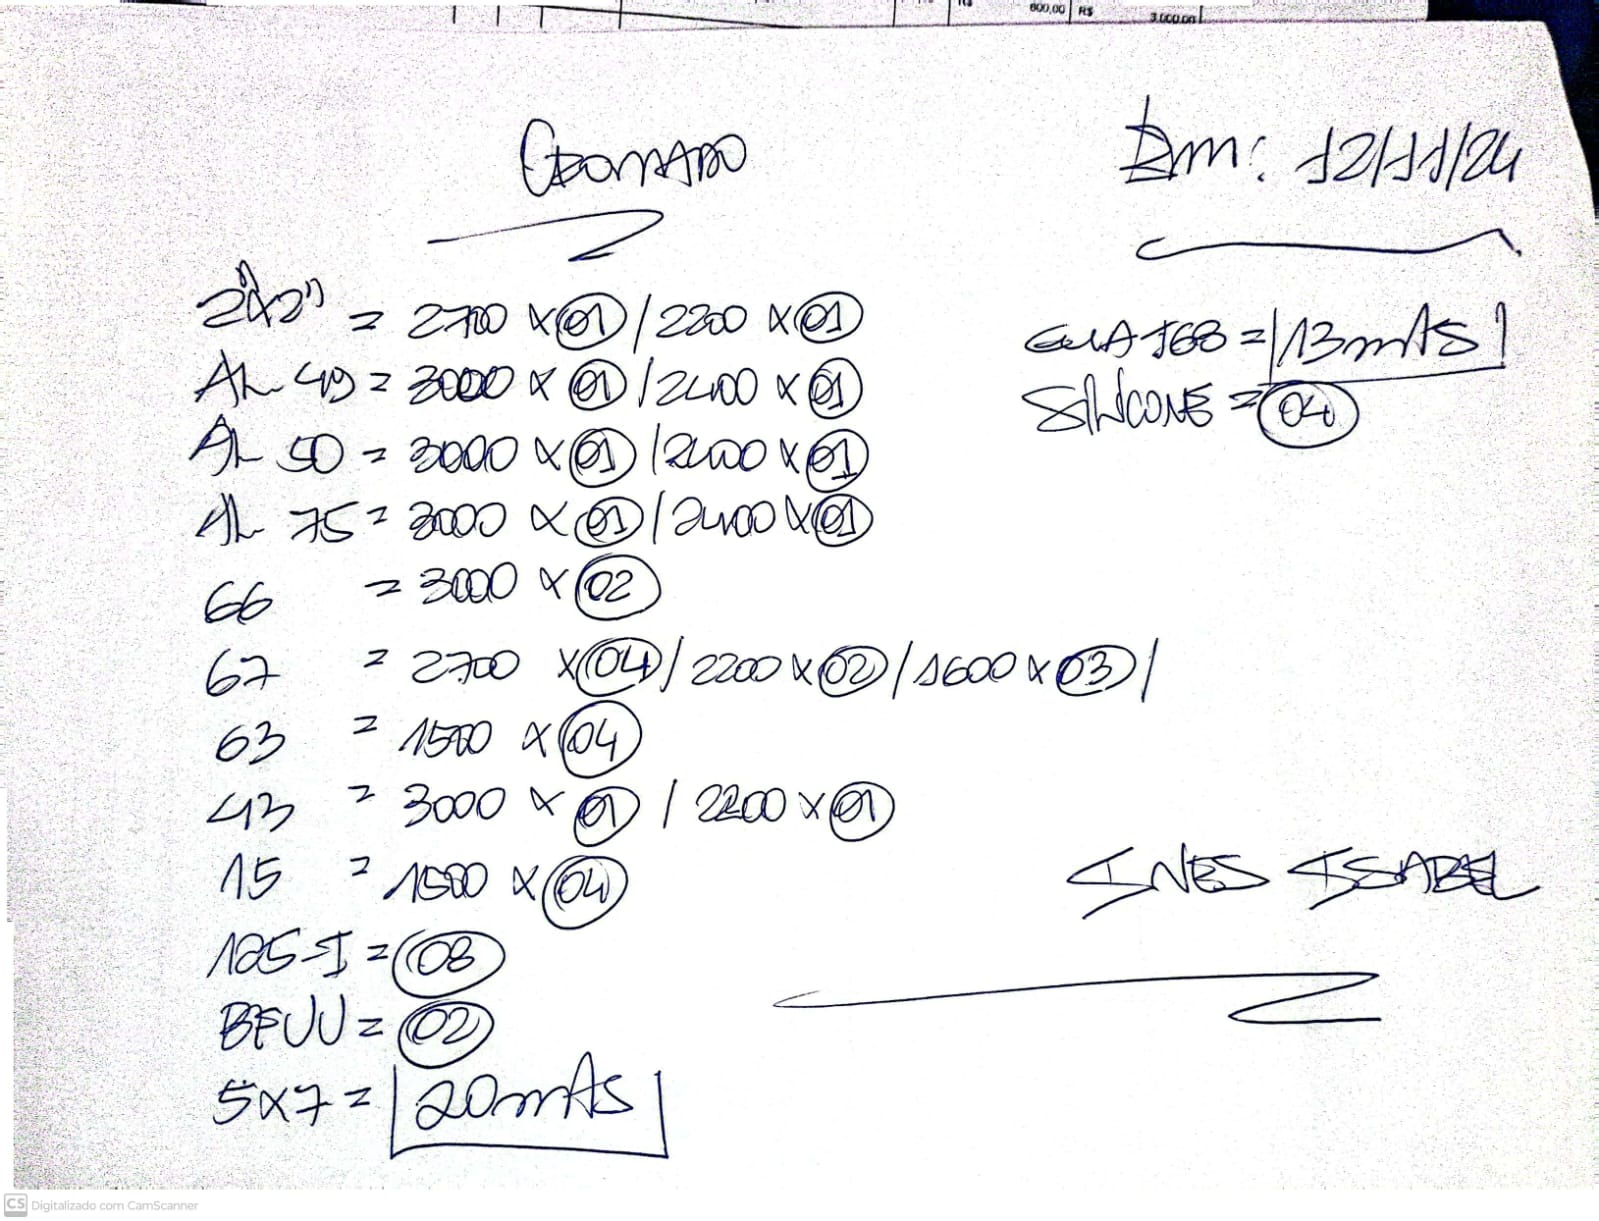 600,00 R$ 3.000,00
CROMADO
Em: 12/11/24
2"x2" = 2700 x 01 / 2200 x 01
AL 49 = 3000 x 01 / 2400 x 01
AL 50 = 3000 x 01 / 2400 x 01
AL 75 = 3000 x 01 / 2400 x 01
66 = 3000 x 02
67 = 2700 x 04 / 2200 x 02 / 1600 x 03 /
63 = 1500 x 04
43 = 3000 x 01 / 2200 x 01
15 = 1500 x 04
125-I = 08
BFUU = 02
5x7 = 20 mAS
GUA 168 = 13 mAS
SILICONE = 04
INES ISABEL
CS Digitalizado com CamScanner